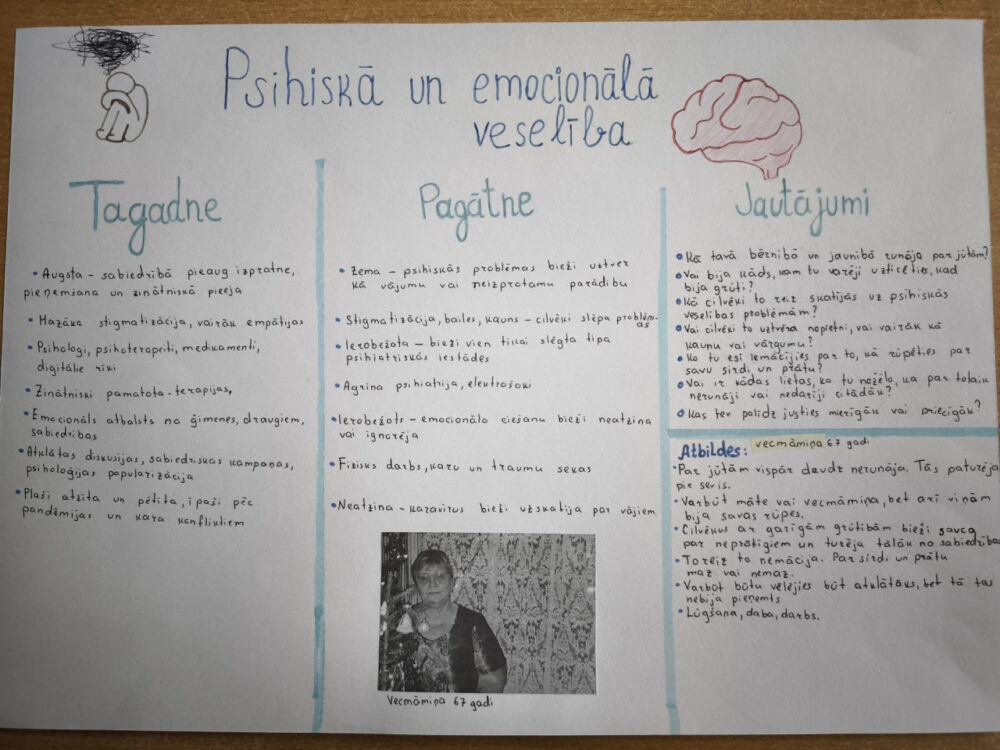 Psihiskā un emocionālā
veselība
Tagadne
• Augsta - sabiedrībā pieaug izpratne,
pieņemšana un zinātniskā pieeja
• Mazāka stigmatizācija, vairāk empātijas
• Psihologi, psihoterapeiti, medikamenti,
digitālie rīki
• Zinātniski pamatota - terapijas,
• Emocionāls atbalsts no ģimenes, draugiem,
sabiedrības
• Atklātas diskusijas, sabiedriskās kampaņas,
psiholoģijas popularizācija
• Plaši atzīta un pētīta, īpaši pēc
pandēmijas un kara konfliktiem
Pagātne
• Zema - psihiskās problēmas bieži uztver
kā vājumu vai neizprotamu parādību
• Stigmatizācija, bailes, kauns - cilvēki slēpa problēm-
as
• Ierobežota - bieži vien tikai slēgta tipa
psihiatriskās iestādēs
• Agrīna psihiatrija, elektrošoki
• Ierobežots - emocionālo ciešanu bieži neatzina
vai ignorēja
• Fizisks darbs, karu un traumu sekas
• Neatzina - karavīrus bieži uzskatīja par vājiem
Vecmāmiņa 67 gadi
Jautājumi
• Kā tavā bērnībā un jaunībā runāja par jūtām?
• Vai bija kāds, kam tu varēji uzticēties, kad
bija grūti?
• Kā cilvēki to reiz skatījās uz psihiskās
veselības problēmām?
• Vai cilvēki to uztvēra nopietni, vai vairāk kā
kaunu vai vārgumu?
• Ko tu esi iemācījies par to, kā rūpēties par
savu sirdi un prātu?
• Vai ir kādas lietas, ko tu nožēlo, ka par tolaik
nerunāji vai nedarīji citādāk?
• Kas tev palīdz justies mierīgāk vai priecīgāk?
Atbildes: vecmāmiņa 67 gadi
• Par jūtām vispār daudz nerunāja. Tās paturēja
pie sevis.
• Varbūt māte vai vecmāmiņa, bet arī viņām
bija savas rūpes.
• Cilvēkus ar garīgām grūtībām bieži sauca
par neprātīgiem un turēja tālāk no sabiedrības
• Toreiz to nemācīja. Par sirdi un prātu
maz vai nemaz.
• Varbūt būtu vēlējies būt atklātāks, bet tā tas
nebija pieņemts
• Lūgšana, daba, darbs.